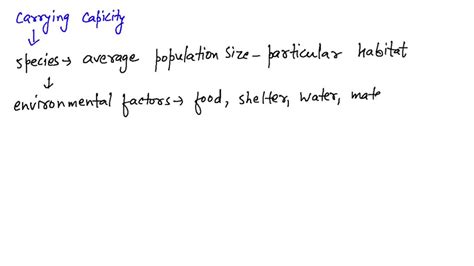 Carrying Capicity
↓
species → average population size - particular habitat
↓
environmental factors → food, shelter, water, mate